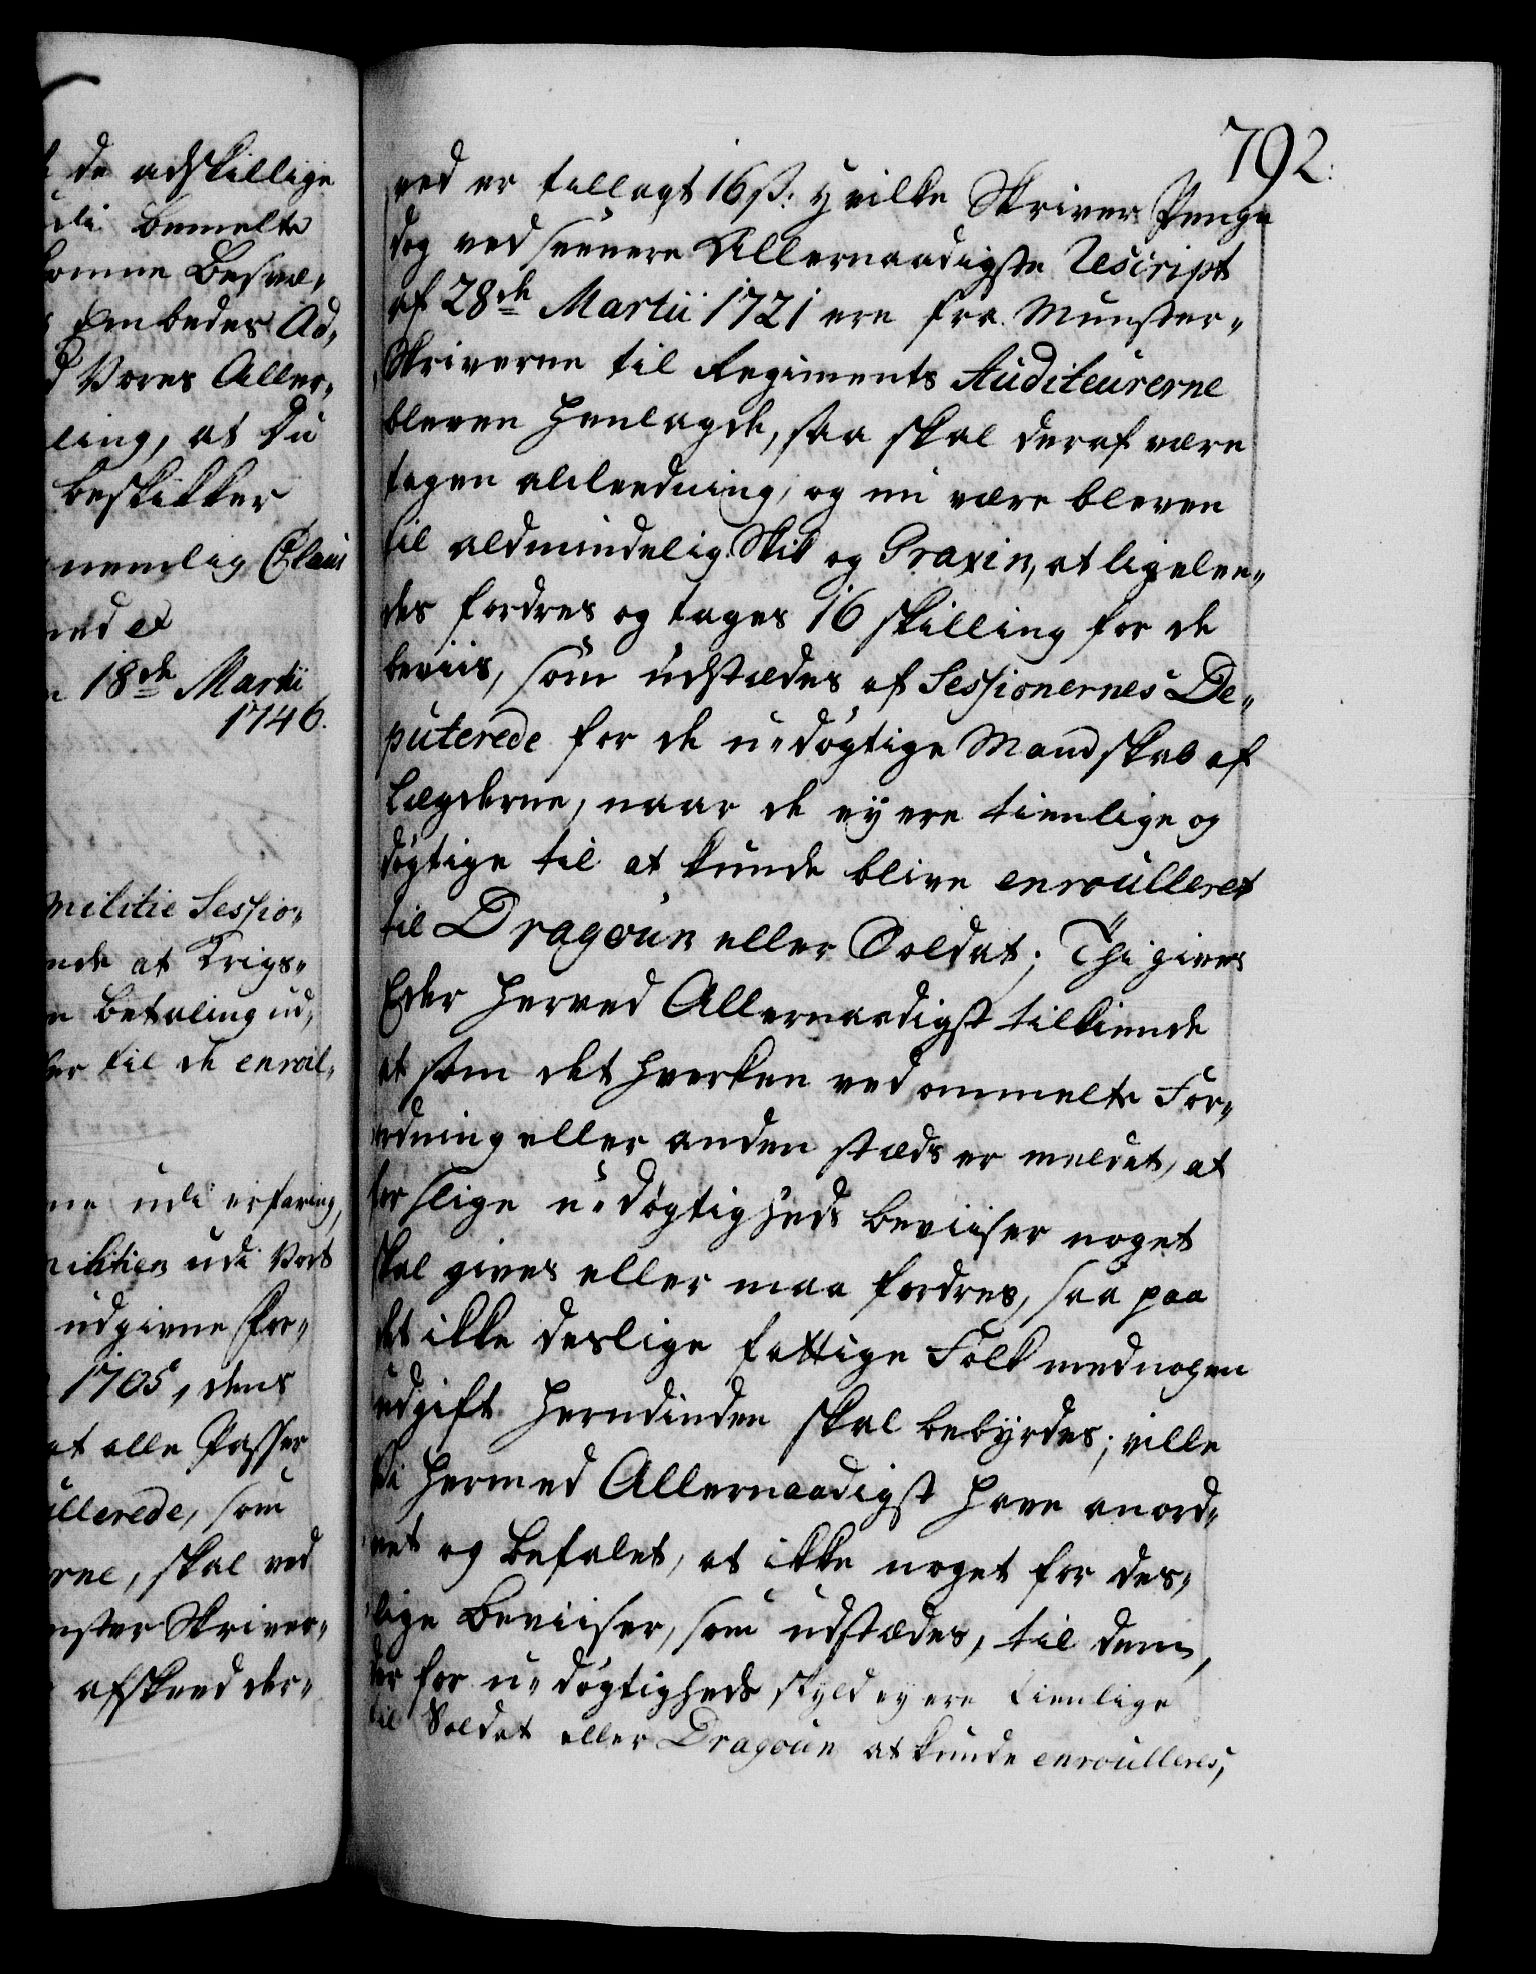 de adskillige
udi bemelte
komne Besvæ,,
Embedes Ad,,
Vores Aller,,
ling, at Du
beskikker
nemlig Claus
18de Martii
1746.
Militie Sessio,,
ende at Krigs,,
betaling ud,,
til de enroul,,
udi erfaring,
militien udi Vort
udgivne For,,
1705, dens
at alle Passer
ullerede, som
erne, skal ved
Mønster Skriver,,
afskeed der,,
792.
ved er tillagt 16 ß: hvilke Skriver Penge
dog ved senere Allernaadigste Rescript
af 28de Martii 1721 ere fra Munster,,
Skriverne til Regiments Auditeurerne
bleven henlagde, saa skal deraf være
tagen anleedning, og nu være bleven
til aldmindelig Skik og Praxin, at ligelee,,
des fordres og tages 16 skilling for de
beviis, som udstædes af Sessionernes De,,
puterede for de u-døgtige Mandskab af
Lægderne, naar de ey ere tienlige og
døgtige til at kunde blive enroulleret
til Dragoun eller Soldat; Thi gives
Eder herved Allernaadigst tilkiende
at som det hverken ved ommelte For,,
ordning eller anden stæds er meldet, at
for slige u-døgtigheds beviiser noget
skal gives eller maa fordres, saa paa
det ikke deslige fattige Folk med nogen
udgift herudinden skal bebyrdes; ville
Vi hermed Allernaadigst have anord,,
net og befalet, at ikke noget for des,,
lige Beviiser, som udstædes, til dem,
der for u-døgtigheds skyld ey ere tienlige
til Soldat eller Dragoun at kunde enroulleres,